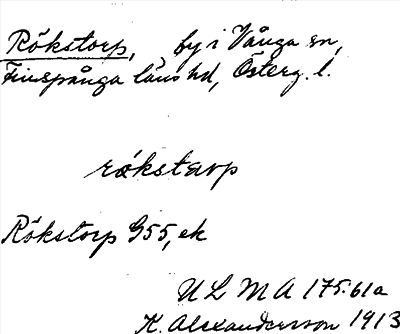 Rökstorp, by i Vånga sn,
Finspånga läns hd, Österg. l.
rökstarp
Rökstorp G55, ek
ULMA 175:61a
K. Alexanderson 1913